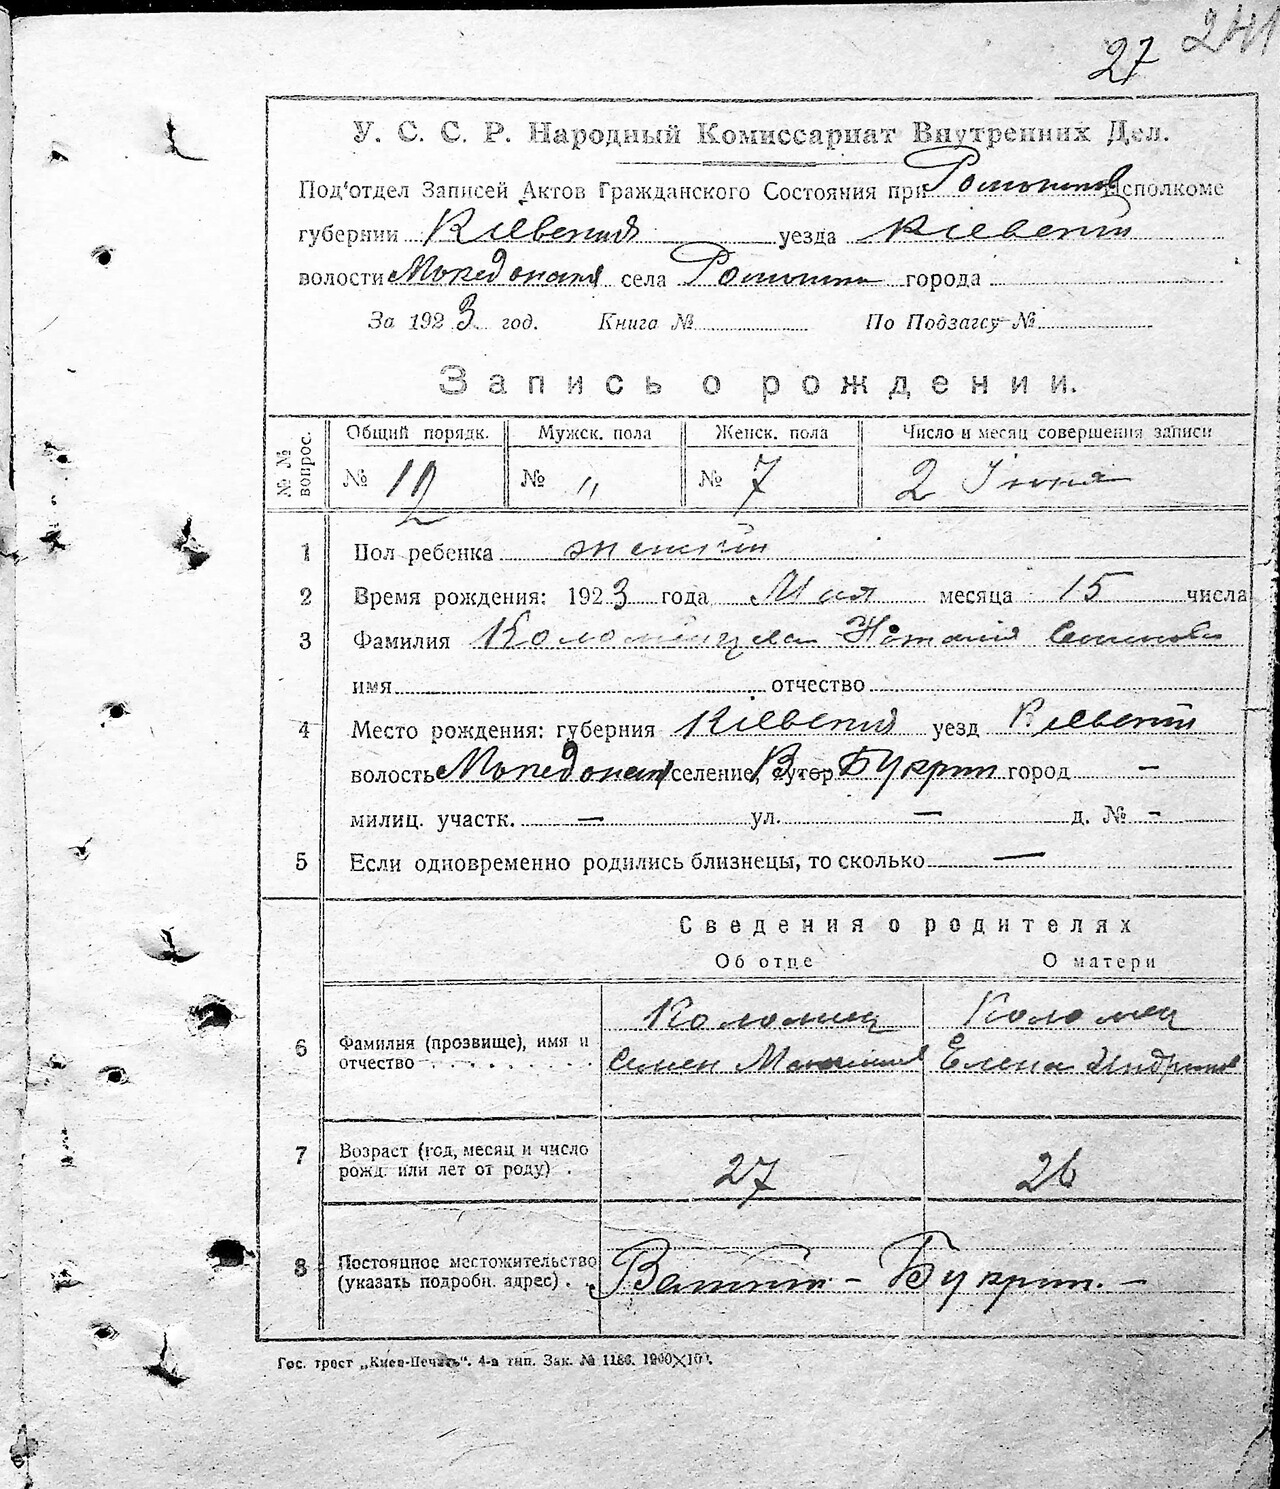 241
27
У. С. С. Р. Народный Комиссариат Внутренних Дел.
Под'отдел Записей Актов Гражданского Состояния при Исполкоме
губернии Кіевския уезда Кіевскій
волости Македонская села города
За 1923 год. Книга № По Подзагсу №
Запись о рождении.
№ № вопрос.
Общий порядк. Мужск. пола Женск. пола Число и месяц совершения записи
№ 12 № „ № 7 2 Іюня
1 Пол ребенка женскій
2 Время рождения: 1923 года Мая месяца 15 числа
3 Фамилия
имя отчество
4 Место рождения: губерния Кіевския уезд Кіевскій
волость Македонская селение, хутор В Букрин город —
милиц. участк. — ул. — д. № -
5 Если одновременно родились близнецы, то сколько —
Сведения о родителях
Об отце О матери
Коломиец Коломец
6 Фамилия (прозвище), имя и
отчество Семен Елена
7 Возраст (год, месяц и число
рожд. или лет от роду) . 27 26
8 Постоянное местожительство
(указать подробн. адрес) . . - Букрин. -
Гос. трест „Киев-Печать". 4-я тип. Зак. № 1186.